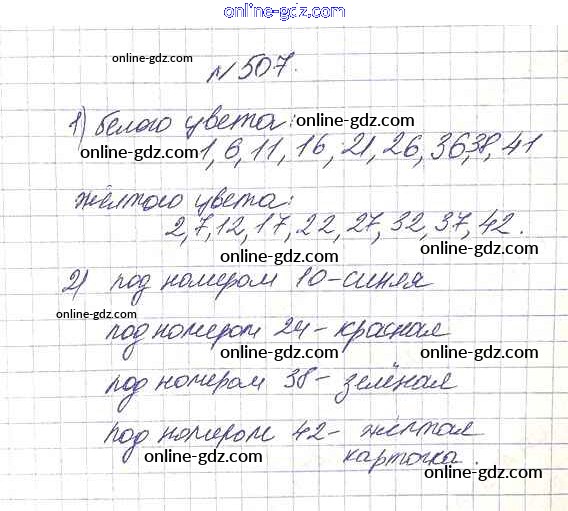 online-gdz.com
№507.
online-gdz.com
1) белого цвета:
online-gdz.com
online-gdz.com
1, 6, 11, 16, 21, 26, 36, 38, 41
жёлтого цвета:
online-gdz.com
2, 7, 12, 17, 22, 27, 32, 37, 42.
online-gdz.com
online-gdz.com
2) под номером 10-синяя
online-gdz.com
под номером 24-красная
online-gdz.com
online-gdz.com
под номером 38-зелёная
online-gdz.com
под номером 42-жёлтая
online-gdz.com
online-gdz.com
карточка.
online-gdz.com
online-gdz.com